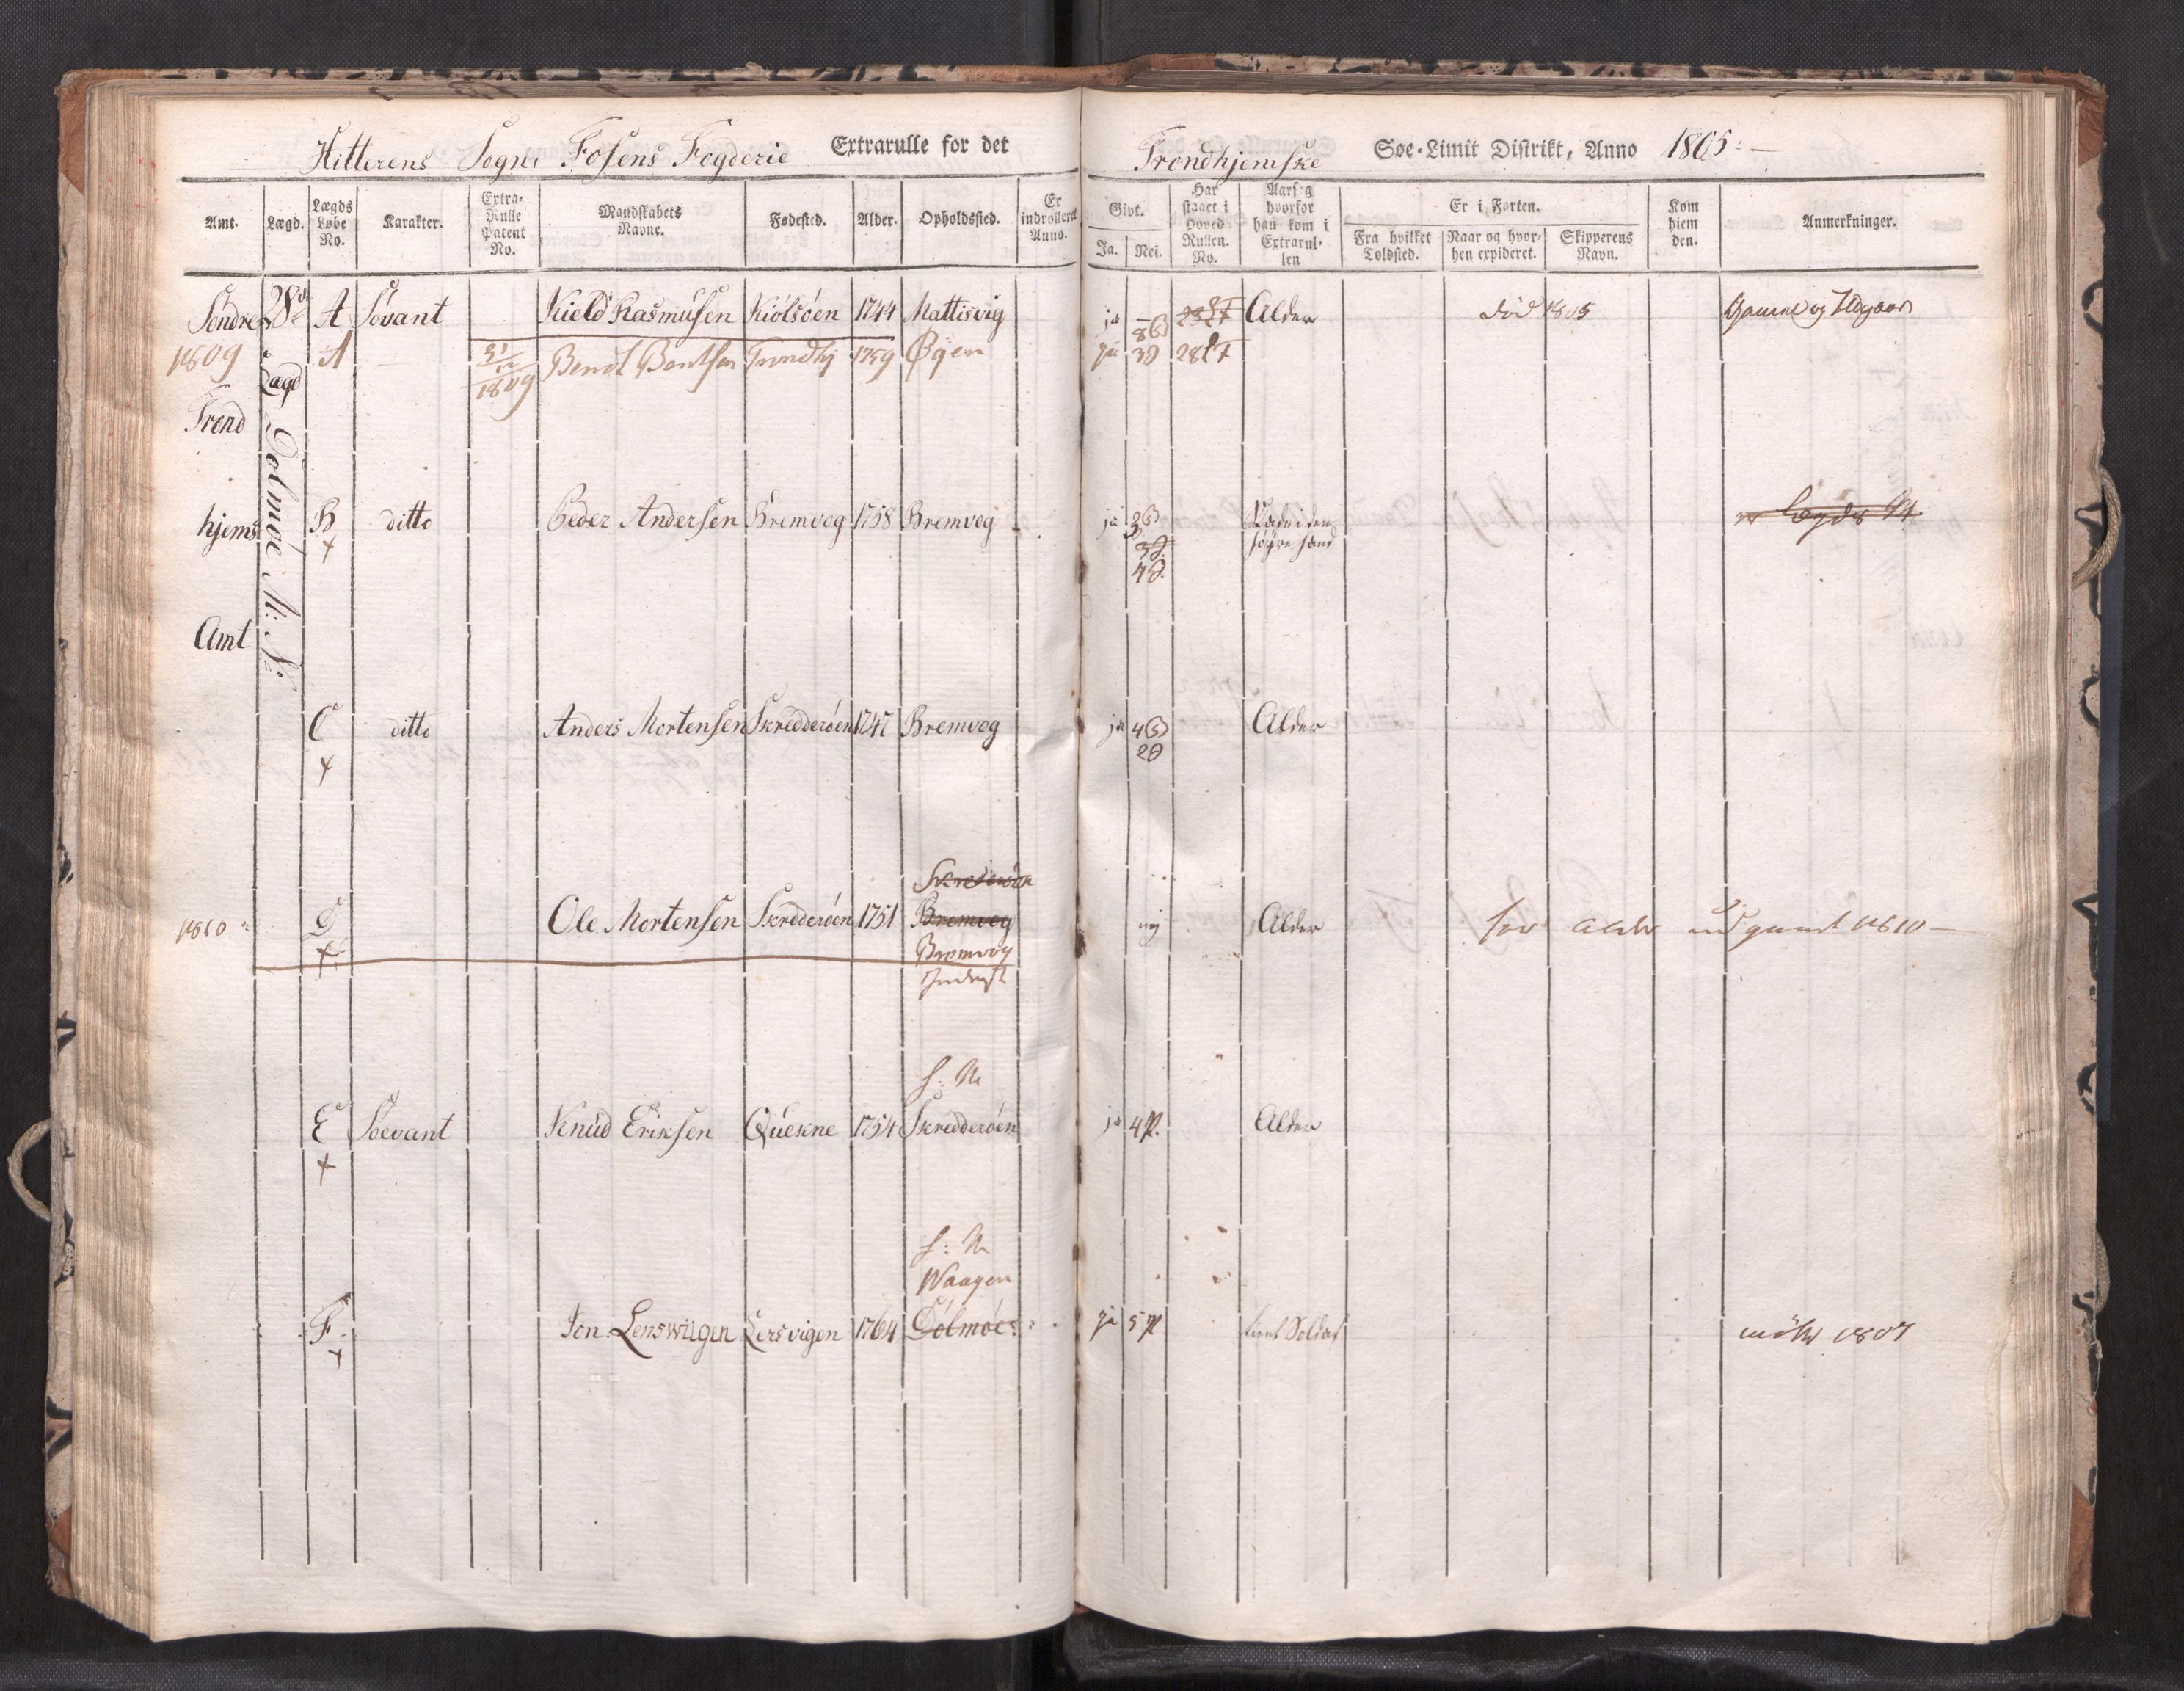 Hitterens Sogn, Fosens Fogderie Extrarulle for det Trondhjemske Søe-Limit Distrikt, Anno 1805
Amt. Lægd. Lægds Løbe No. Karakter. Extra-Rulle Patent No. Mandskabets Navne. Fødested. Alder. Opholdssted. Er indrolleret Anno. Givt. Ja. Nei. Har staaet i Hoved Rullen. No. Aars og hvorfor han kom i Extrarullen Er i Farten. Fra hvilket Toldsted. Naar og hvorhen expideret. Skipperens Navn. Kom hiem den. Anmerkninger.
Søndre 28de A Søvant Kield Rasmusen Kiölsöen 1744 Mattisvig ja 28 Alder död 1805
1809 Lægd A 31/12 1809 Bendt Bentsen Trondhj 1759 Øyen ja 28
Trond
Dolmöe
hjems B ditto Peder Andersen Bremvog 1758 Bremvog ja
höyre haand
Amt
C ditto Anders Mortensen Skredderöen 1747 Bremvog ja Alder
Skrederöen
1810 D Ole Mortensen Skredderöen 1751 Bremvog nej Alder for Alder udgaaet 1810
Bremvog
E Söevant Knud Eriksen Quekne 1754 Skredderöen ja Alder
Waagen
F Jon Lenswigen Lersvigen 1764 Dolmöe ja tient Soldat möder 1807